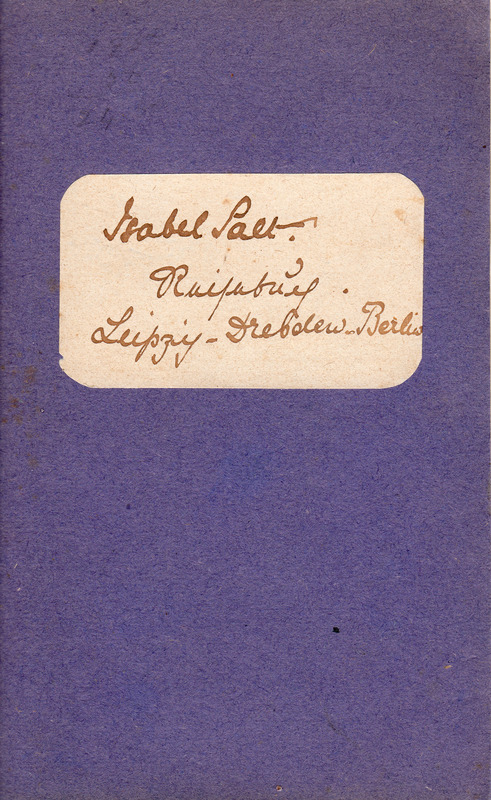 Isabel Salt.
Reisebuch.
Leipzig - Dresden - Berlin